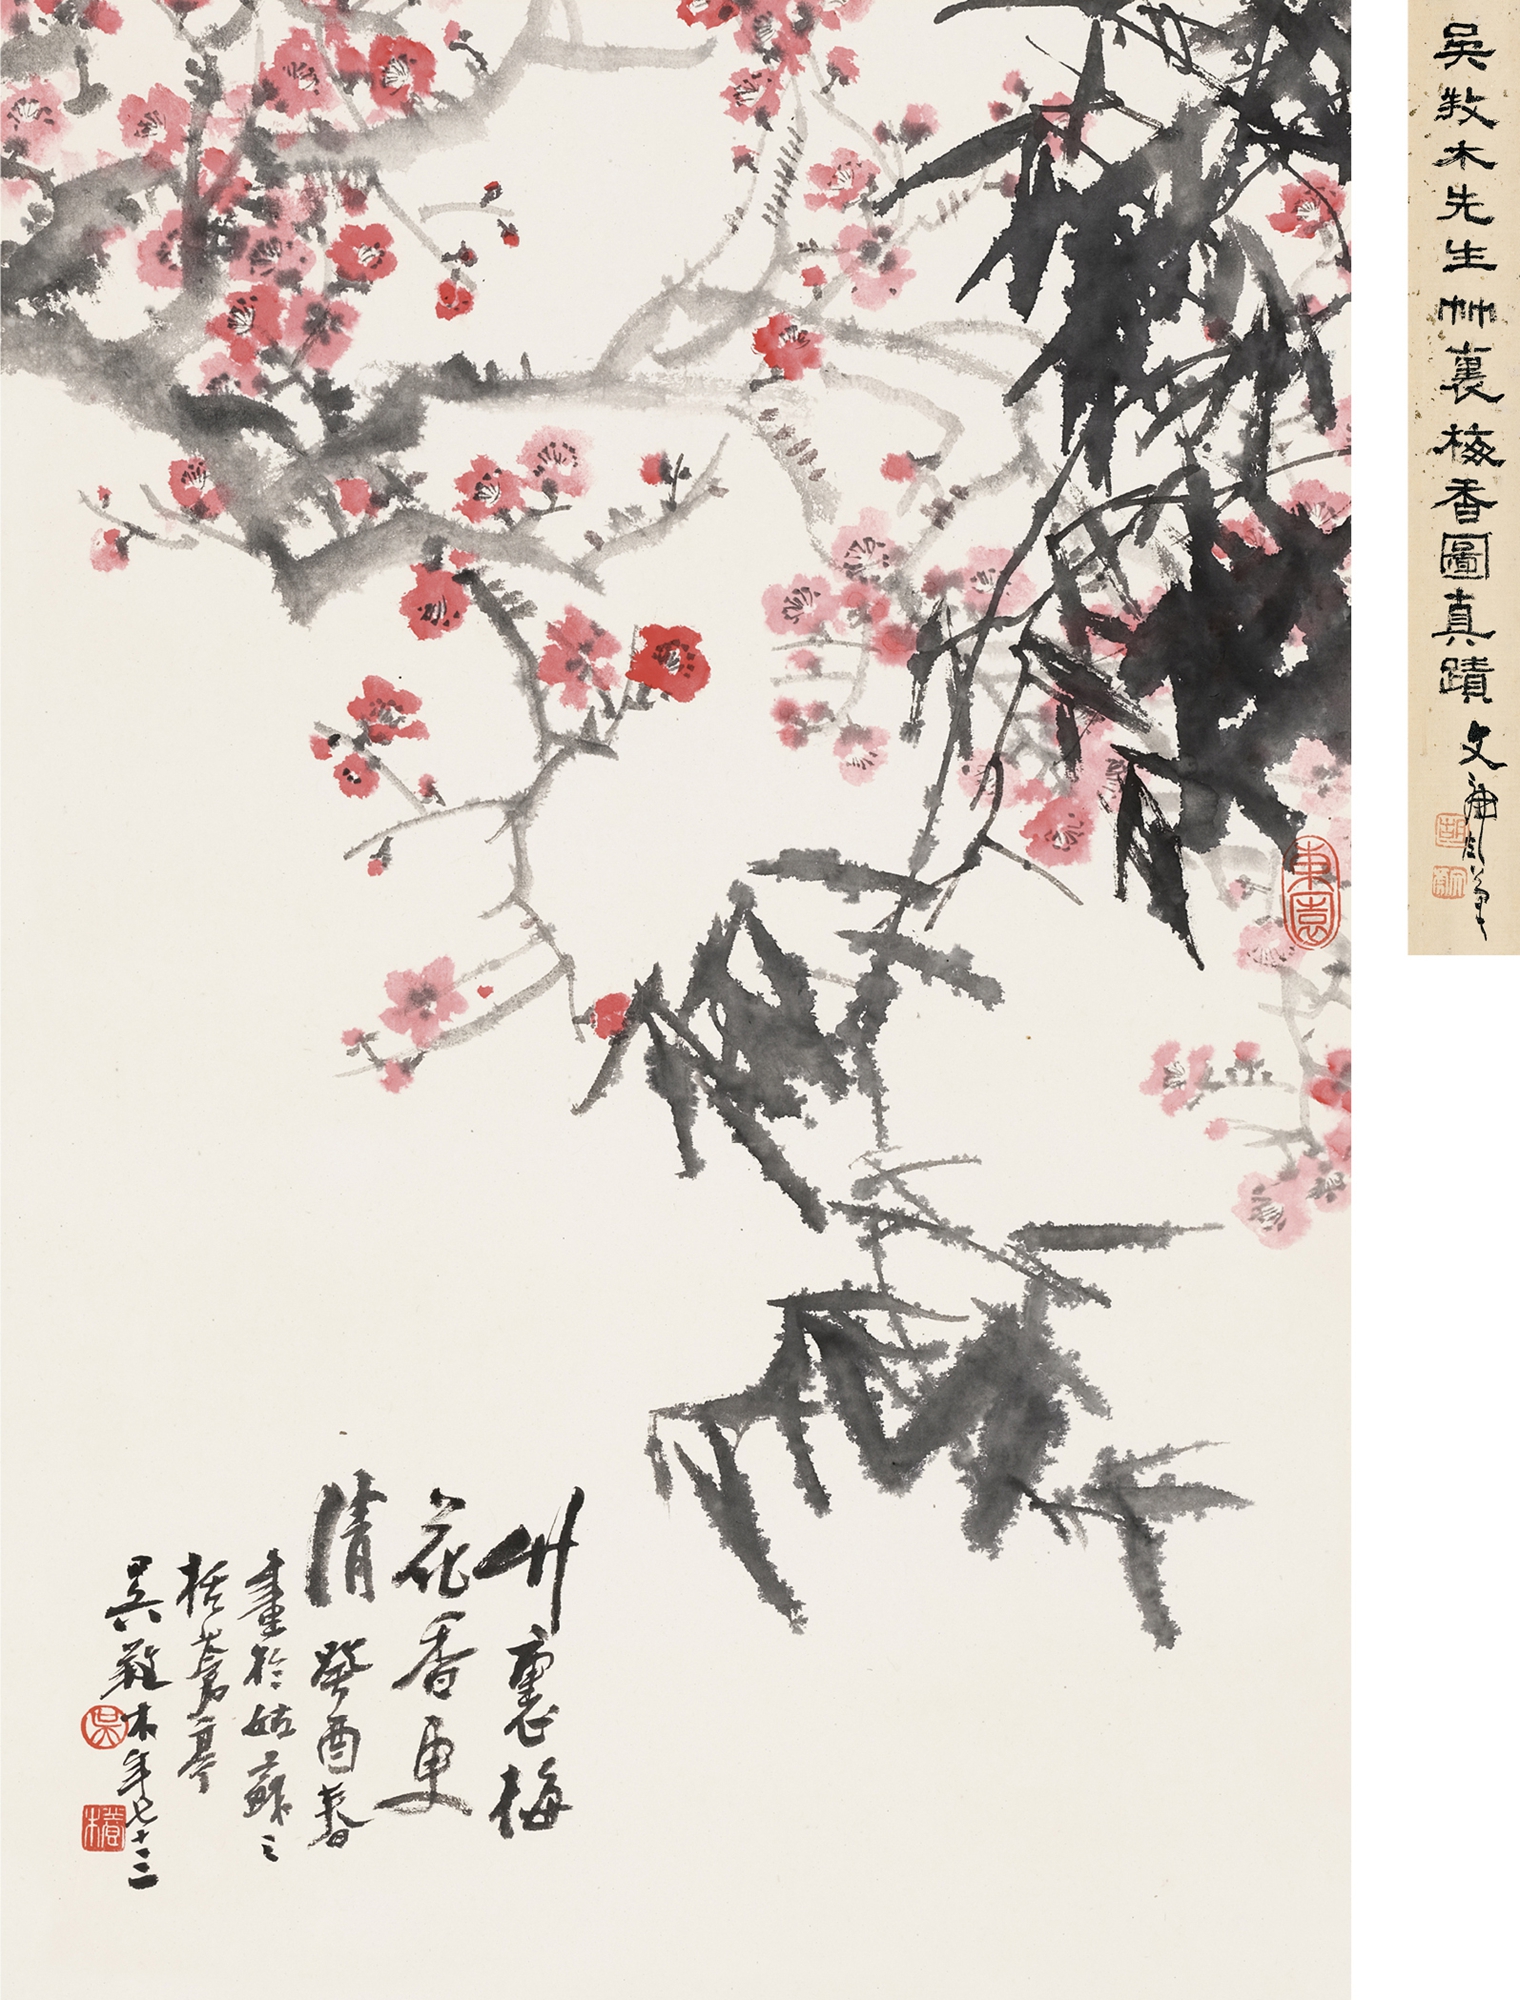 吴敉木先生竹裏梅香圖真蹟
竹裏梅
花香更
清癸酉春
畫於姑蘇之
栝蒼亭
吴敉木年七十三
東園